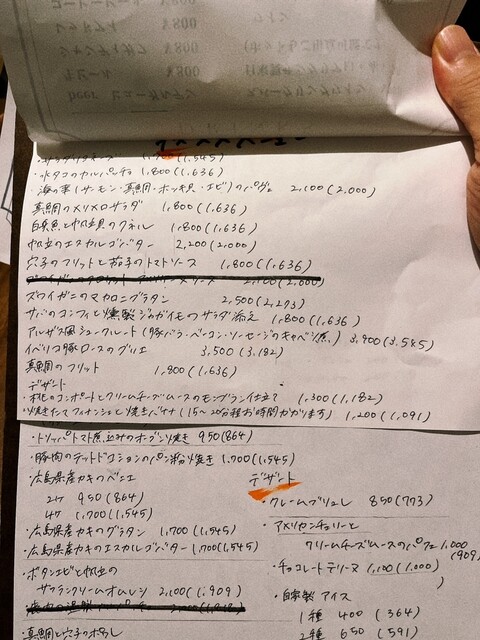 beer ヒューガルデン
1,700(1,545)
・水タコのカルパッチョ 1,800(1,636)
・海の幸(サーモン・真鯛・ホッキ貝・エビ)のパフェ 2,100(2,000)
真鯛のメリメロサラダ 1,800(1,636)
白身魚と帆立貝のクネル 1,800(1,636)
帆立のエスカルゴバター 2,200(2,000)
穴子のフリットと茄子のトマトソース 1,800(1,636)
ズワイガニのマカロニグラタン 2,500(2,273)
サバのコンフィと燻製ジャガイモのサラダ添え 1,800(1,636)
アルザス風シュークルート(豚バラ・ベーコン・ソーセージのキャベツ煮) 3,900(3,545)
イベリコ豚ロースのグリエ 3,500(3,182)
真鯛のフリット 1,800(1,636)
デザート
・桃のコンポートとクリームチーズムースのモンブラン仕立て 1,300(1,182)
・焼きたてフィナンシェと焼きバナナ(15〜20分程お時間かかります) 1,200(1,091)
・トリッパトマト煮込みのオーブン焼き 950(864)
・豚肉のテットドコションのパン粉焼き 1,700(1,545)
・広島県産カキのベニエ
2ケ 950(864)
4ケ 1,700(1,545)
・広島県産カキのグラタン 1,700(1,545)
・広島県産カキのエスカルゴバター 1,700(1,545)
・ボタンエビと帆立の
サフランクリームオムレツ 2,100(1,909)
・真鯛と穴子のポワレ
デザート
・クレームブリュレ 850(773)
・アメリカンチェリーと
クリームチーズムースのパフェ 1,000
(909)
・チョコレートテリーヌ 1,100(1,000)
・自家製アイス
1種 400(364)
2種 650(591)